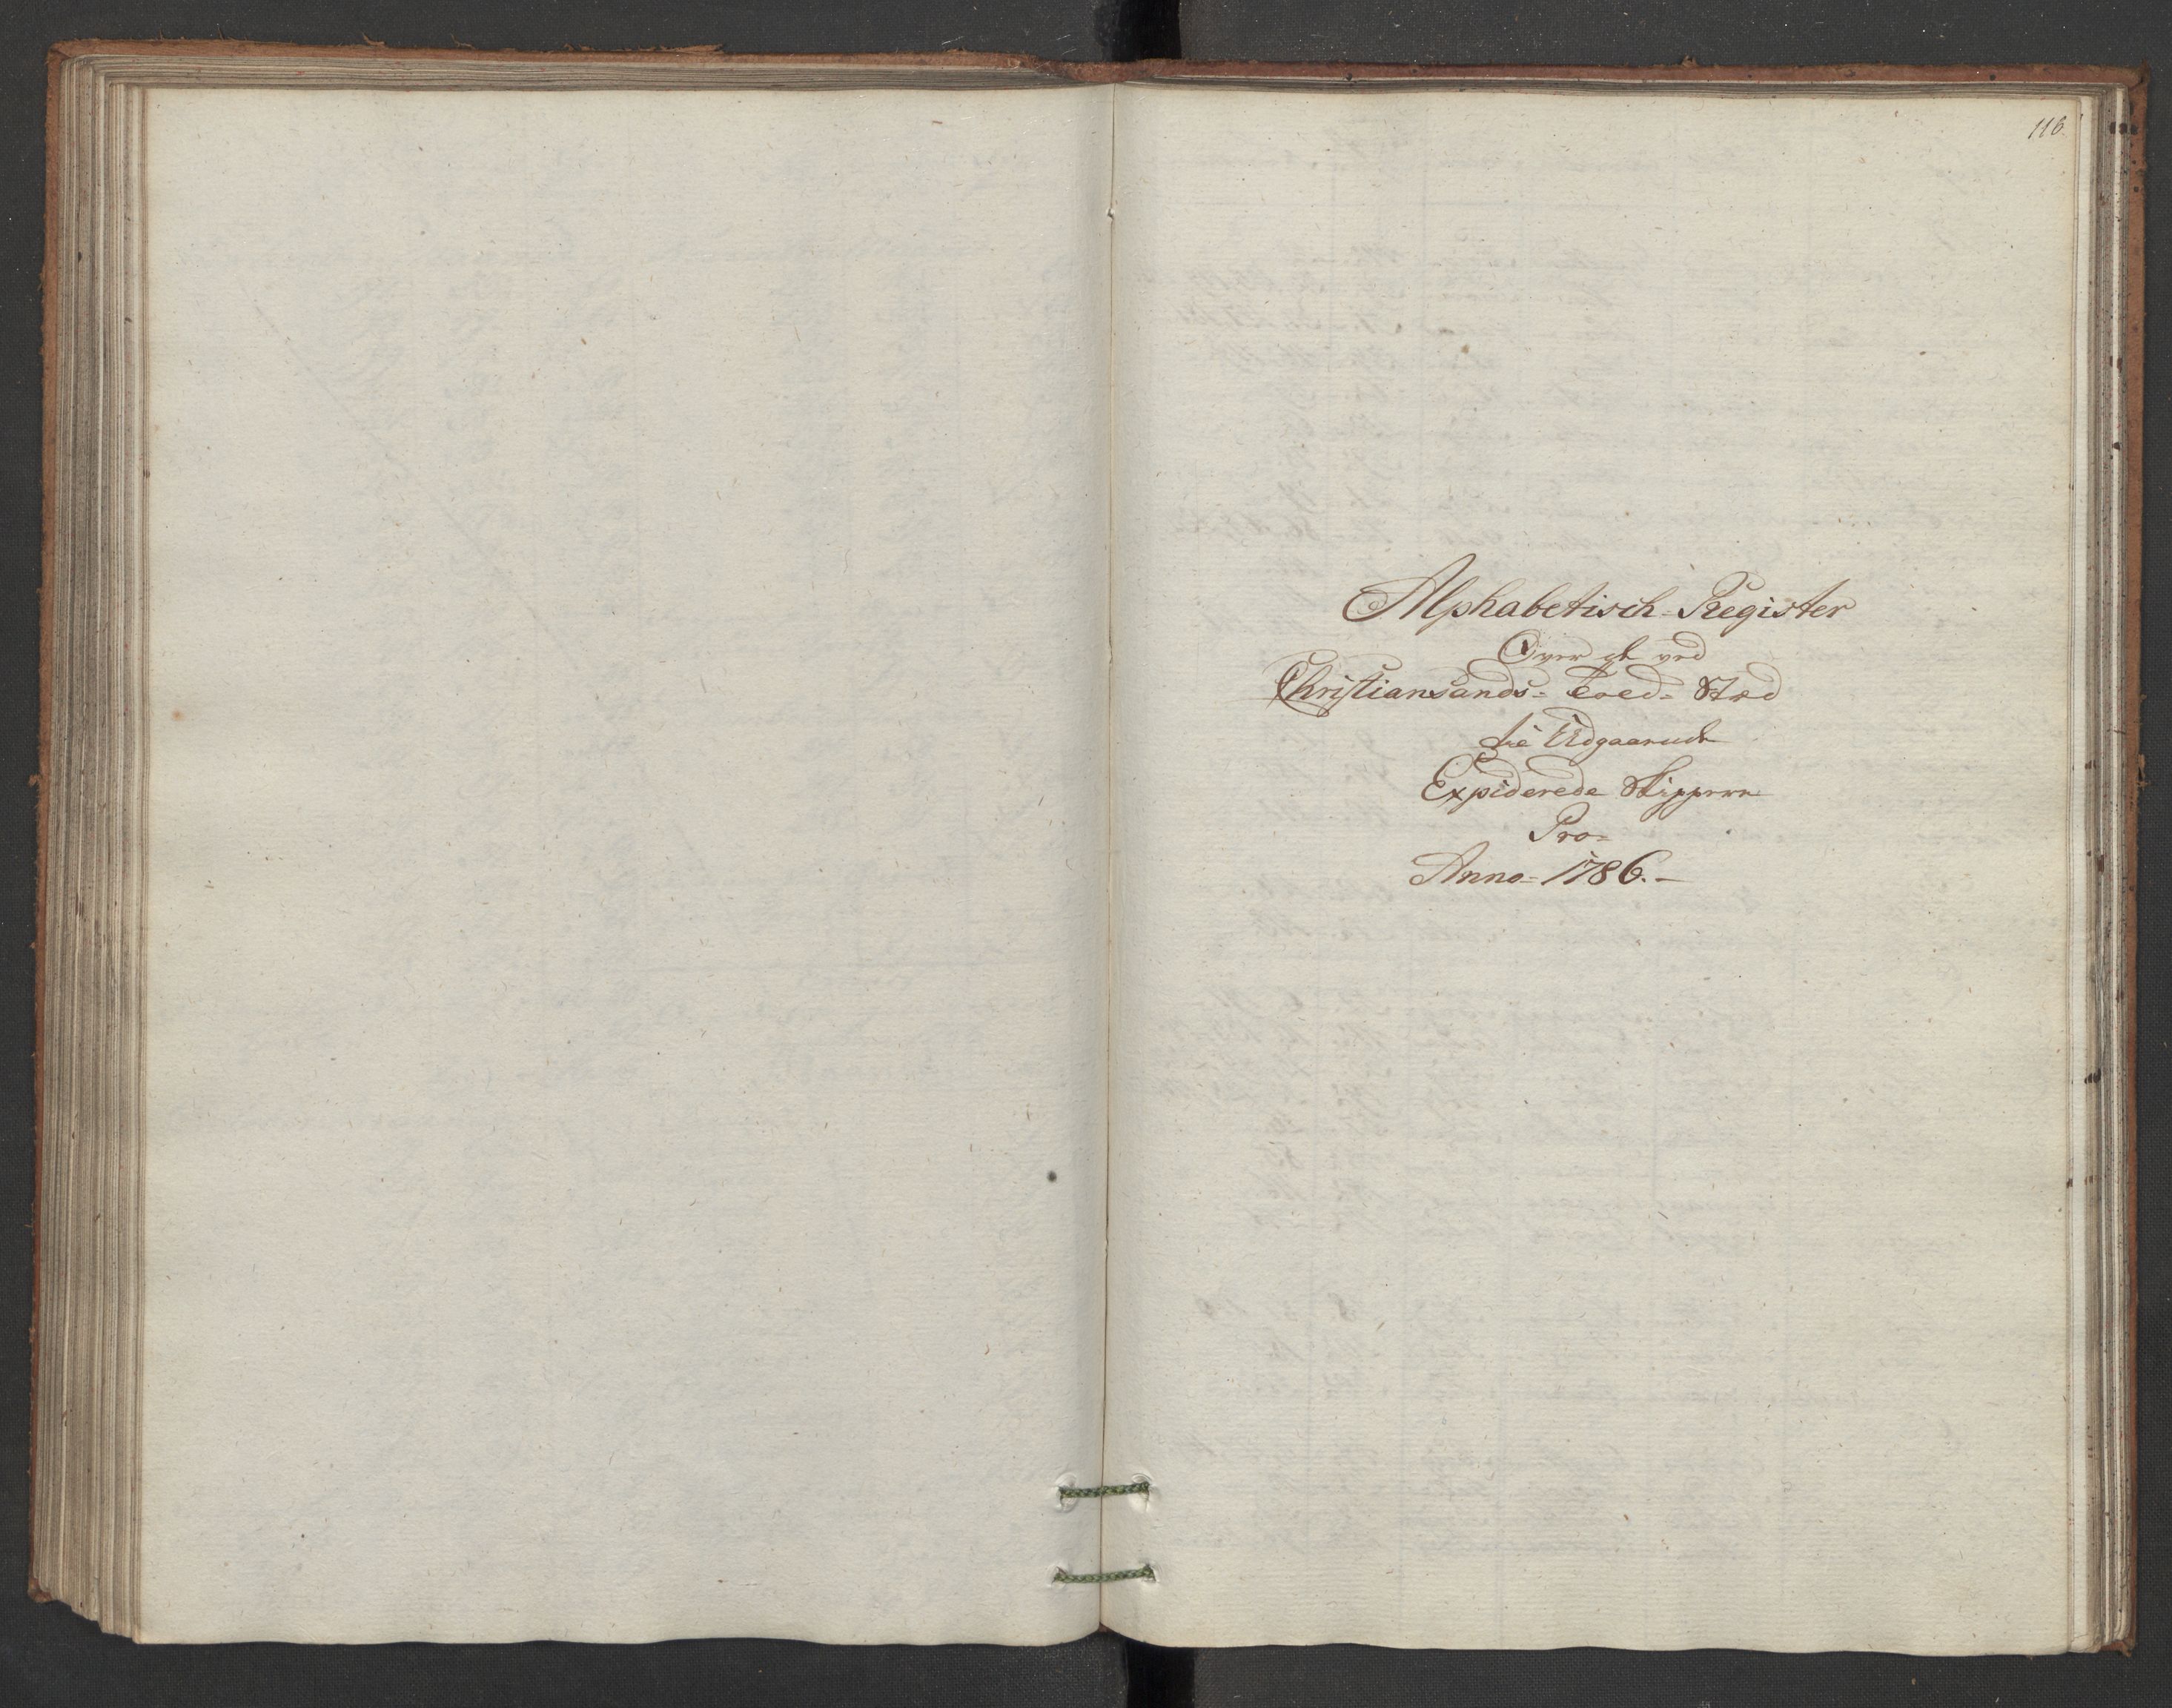 116.
Alphabetisch-Register
Over de ved
Christiansands- Toed- Stæd
til Udgaaende
Expiderede Skippere
Pro-
Anno- 1786.-